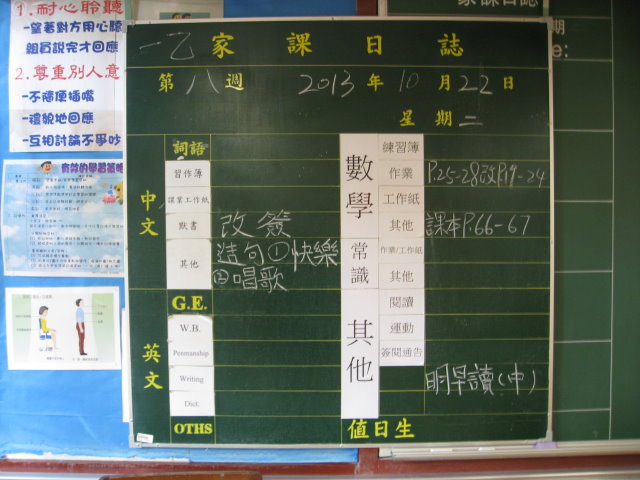 1.耐心聆聽
-望著對方用心聽
組員說完才回應
2.尊重別人意
-不隨便插嘴
-禮貌地回應
-互相討論不爭吵
有效的學習策略
一乙家課日誌
第八週 2013年10月22日
星期二
中文
詞語
習作簿
課業工作紙
默書 改簽
其他 造句①快樂
②唱歌
英文
G.E.
W.B.
Penmanship
Writing
Dict.
OTHS
數學
練習簿
作業 P.25-28改P.19-24
工作紙
其他 課本P.66-67
常識
作業/工作紙
其他
其他
閱讀
運動
簽閱通告
明早讀(中)
值日生
家課日誌
期
e: